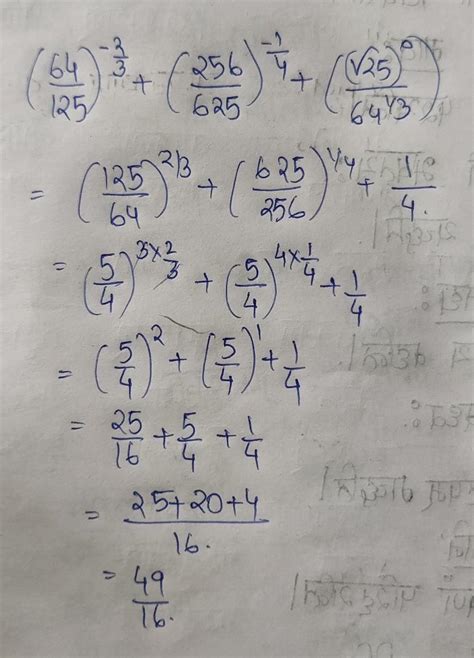 (64/125)^-2/3 + (256/625)^-1/4 + ((√25)^0/64^1/3)
= (125/64)^2/3 + (625/256)^1/4 + 1/4.
= (5/4)^3×2/3 + (5/4)^4×1/4 + 1/4
= (5/4)^2 + (5/4)^1 + 1/4
= 25/16 + 5/4 + 1/4
= 25+20+4/16.
= 49/16.